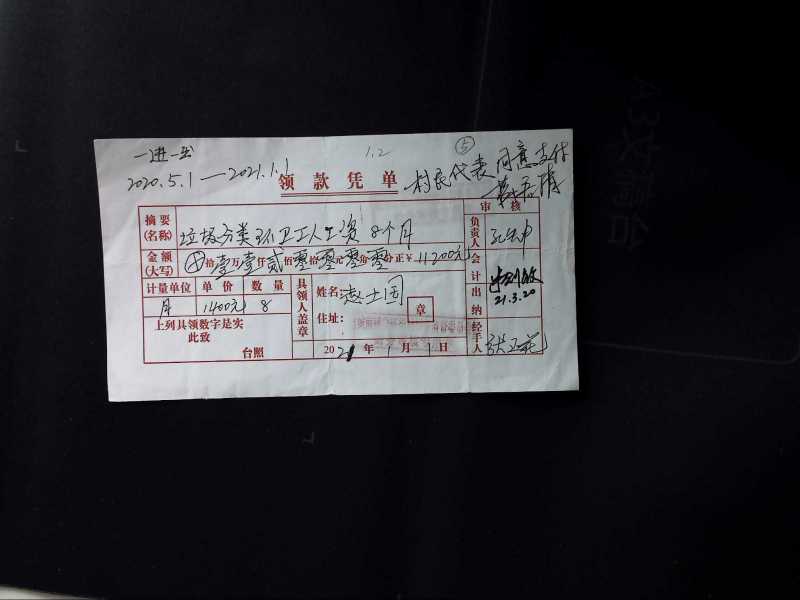 一进一出
1.2
⑤
2020.5.1—2021.1.1
领款凭单
村民代表同意支付
审核
摘要(名称) 垃圾分类环卫工人工资8个月
负责人
金额(大写) ⊕拾壹万壹仟贰佰零拾零元零角零分正¥11200元
会计
出纳 21.3.20
计量单位 单价 数量
月 1400元 8
具领人盖章
姓名: 赵士国
住址:
章
上列具领数字是实
此致
台照
2021年1月1日
经手人